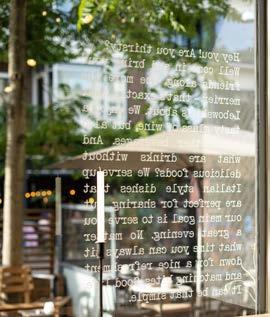 Hey you! Are you thirsty?
Well come in and bring your
friends along, the more the
merrier - that's exact
about. We
tasty glass of wine, but al
And
what are drinks without
delicious foods? We serve up
Italian style dishes that
are perfect for sharing, but
our main goal is to serve you
a great evening. No matter
what time you can always sit
down for a nice refreshment
and matching bites. Good life
It can be that simple.